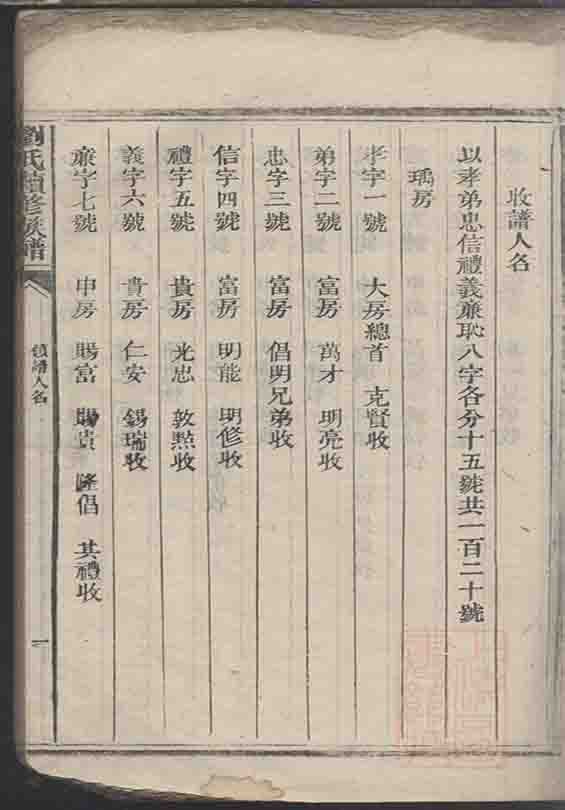 收譜人名
以孝弟忠信禮義亷恥八字各分十五號共一百二十號
瑀房
孝字一號 大房總首 克賢收
弟字二號 富房 萬才 明亮收
忠字三號 富房 倡明兄弟收
信字四號 富房 明能 明修收
禮字五號 貴房 光忠 敦㸃收
義字六號 貴房 仁安 錫瑞收
亷字七號 申房 賜富 賜貴 隆倡 其禮收
劉氏續修族譜
領譜人名
一